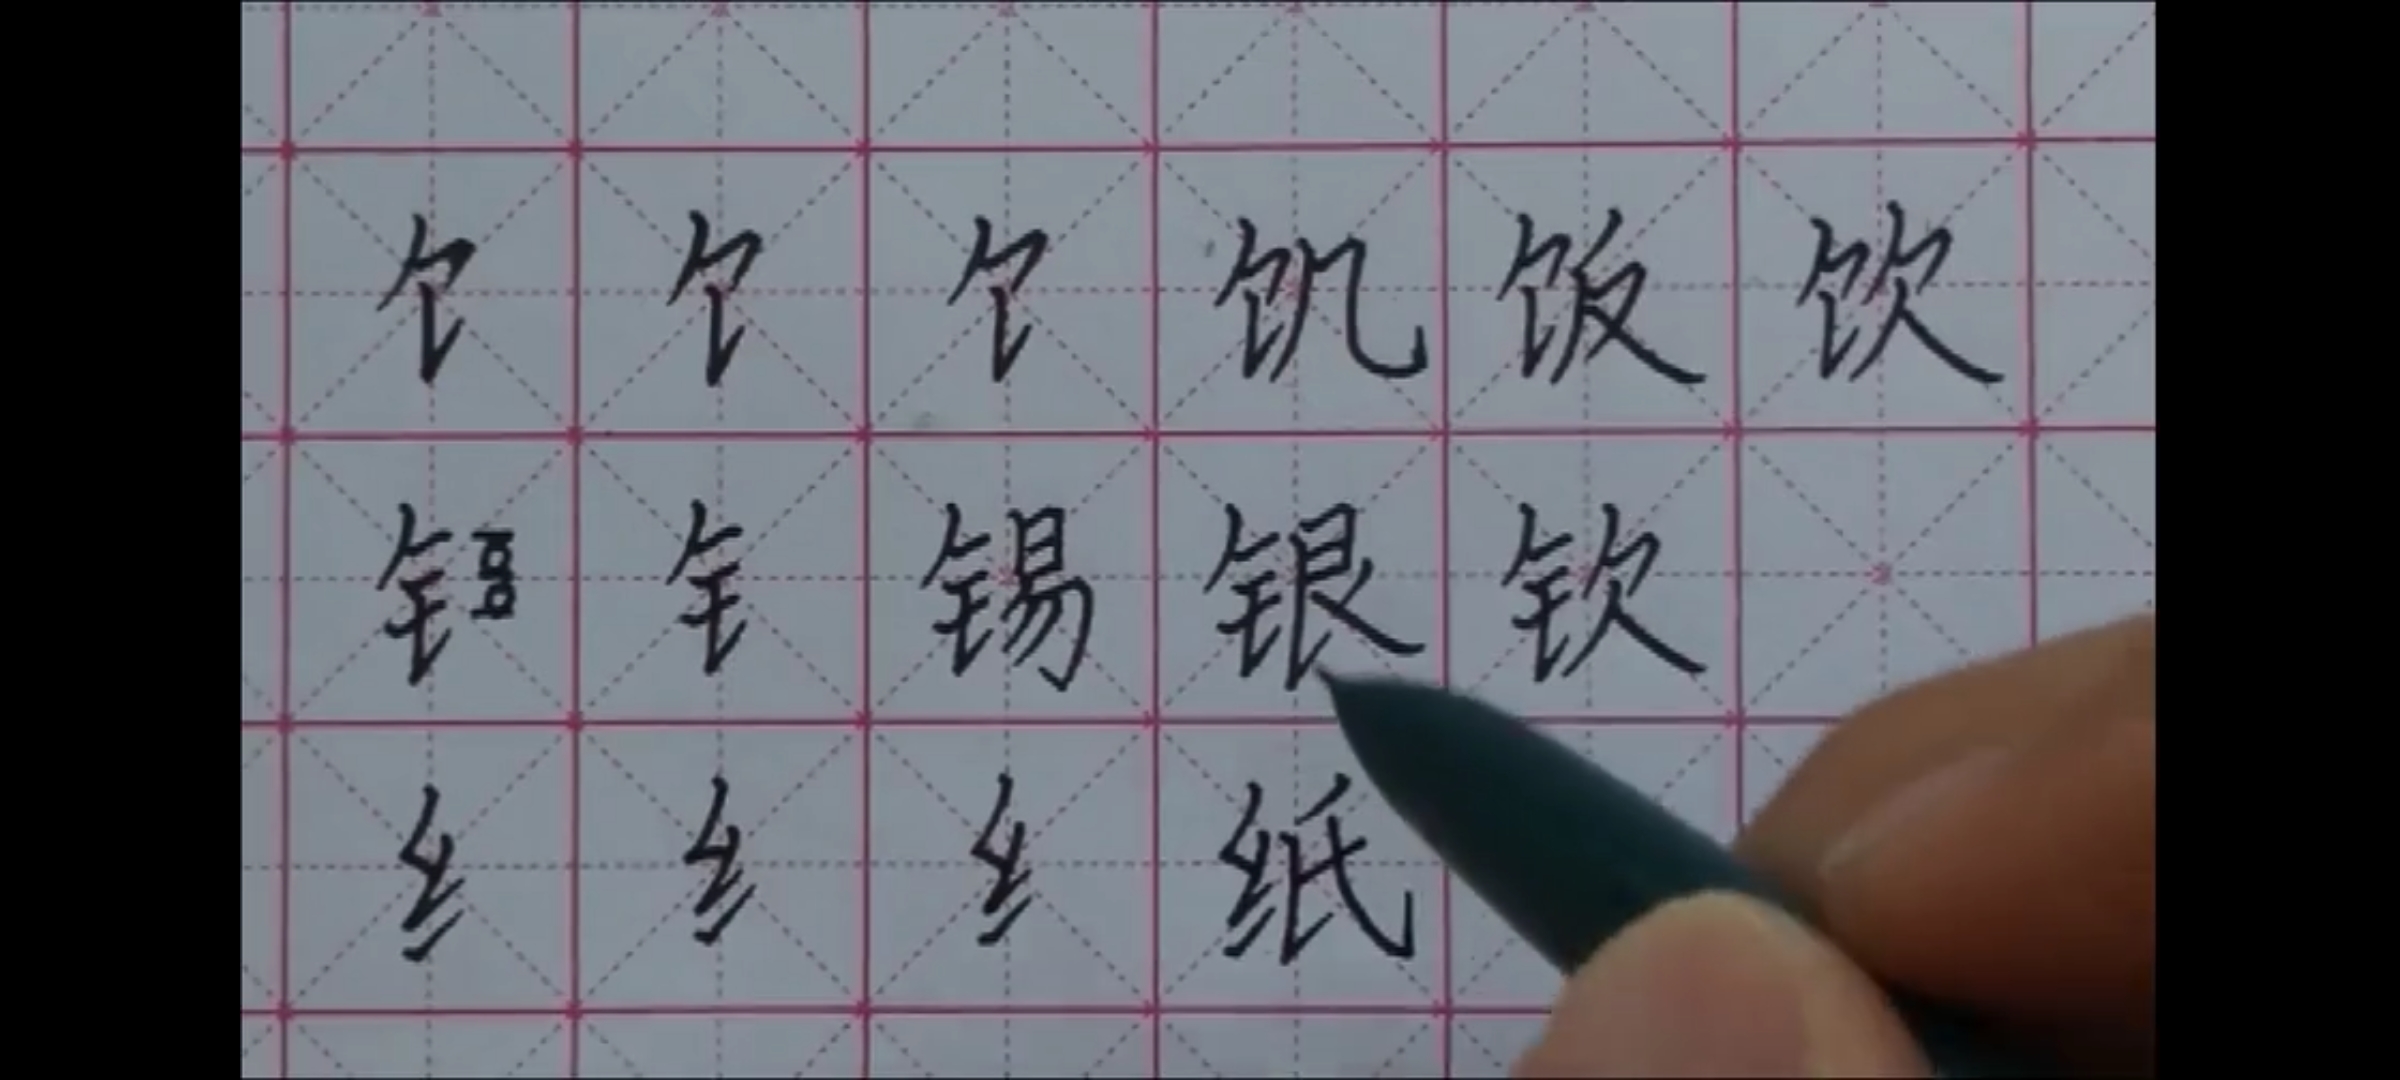 饣 饣 饣 饥 饭 饮
钅 钅 锡 银 钦
纟 纟 纟 纸